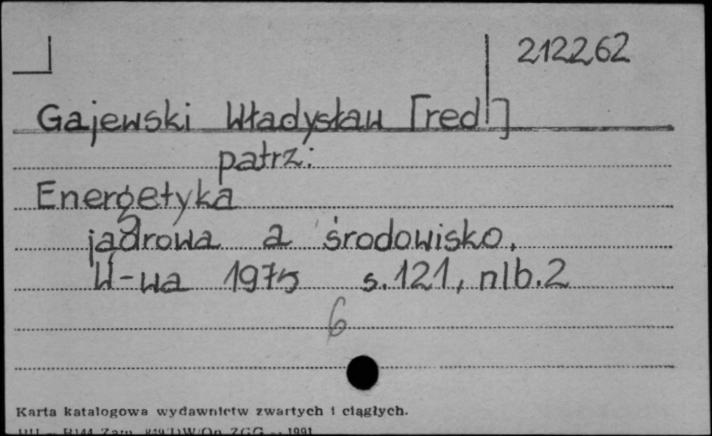 212262
Gajewski Władysław [red]
patrz:
Energetyka
jądrowa a środowisko.
W-wa 1975 s.121, nlb.2
6
Karta katalogowa wydawnictw zwartych i ciągłych.
1991